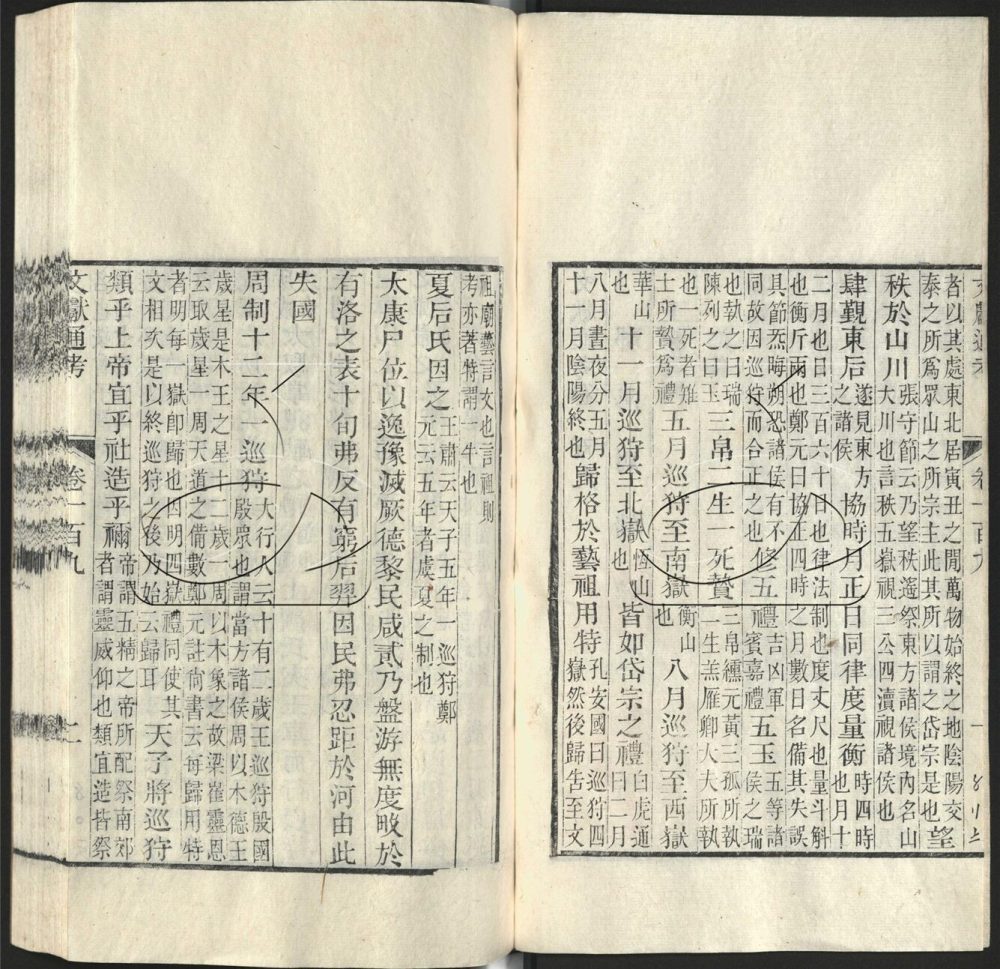 者以其處東北居寅丑之閒萬物始終之地陰陽交
泰之所爲眾山之所宗主此其所以謂之岱宗是也望
秩於山川張守節云乃望秩遙祭東方諸侯境內名山
大川也言秩五嶽視三公四瀆視諸侯也
肆覲東后遂見東方
之諸侯協時月正日同律度量衡時四時
也月十
二月也日三百六十日也律法制也度丈尺也量斗斛
也衡斤兩也鄭元曰協正四時之月數日名備其失誤
其節炁晦朔恐諸侯有不
同故因巡狩而合正之也修五禮吉凶軍
賓嘉禮五玉五等諸
侯之瑞
也執之曰瑞
陳列之曰玉三帛二生一死贄三帛纁元黃三孤所執
二生羔雁卿大夫所執
也一死者雉
士所贄爲禮五月巡狩至南嶽衡山
也八月巡狩至西嶽
華山
也十一月巡狩至北嶽恆山
也皆如岱宗之禮白虎通
曰二月
八月晝夜分五月
十一月陰陽終也歸格於藝祖用特孔安國曰巡狩四
嶽然後歸告至文
卷一百九
祖廟藝言文也言祖則
考亦著特謂一牛也
夏后氏因之王肅云天子五年一巡狩鄭
元云五年者虞夏之制也
太康尸位以逸豫滅厥德黎民咸貳乃盤游無度畋於
有洛之表十旬弗反有窮后羿因民弗忍距於河由此
失國
周制十二年一巡狩大行人云十有二歲王巡狩殷國
殷眾也謂當方諸侯周以木德王
歲星是木王之星十二歲一周以木象之故梁崔靈恩
云取歲星一周天道之備數鄭元註尙書云每歸用特
者明每一嶽卽歸也因明四嶽禮同使其
文相次是以終巡狩之後乃始云歸耳天子將巡狩
類乎上帝宜乎社造乎禰帝謂五精之帝所配祭南郊
者謂靈威仰也類宜造皆祭
文獻通考
卷一百九